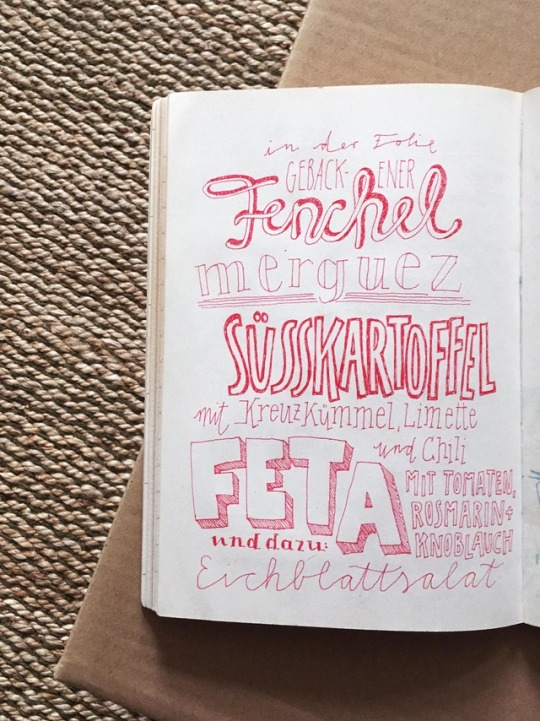 in der Folie
GEBACK-ENER
Fenchel
merguez
SÜSSKARTOFFEL
mit Kreuzkümmel, Limette
und Chili
FETA
MIT TOMATEN,
ROSMARIN+
KNOBLAUCH
und dazu:
Eichblattsalat